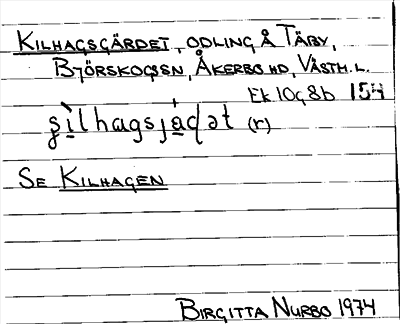 KILHAGSGÄRDET, ODLING Å TÄBY,
BJÖRSKOGSSN, ÅKERBO HD, VÄSTM. L.
Ek 10g8b 154
(r)
SE KILHAGEN
BIRGITTA NURBO 1974